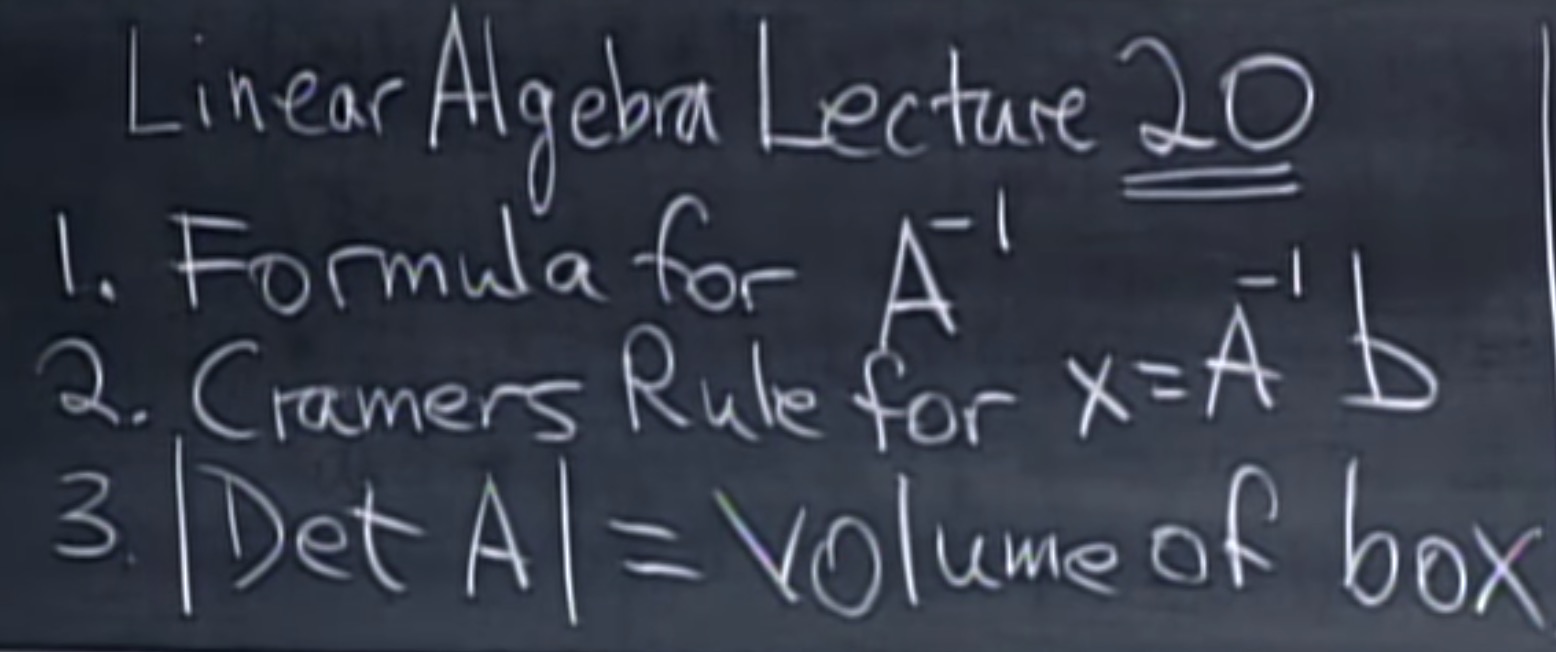 Linear Algebra Lecture 20
1. Formula for A⁻¹
2. Cramers Rule for x=A⁻¹ b
3. |Det A| = Volume of box